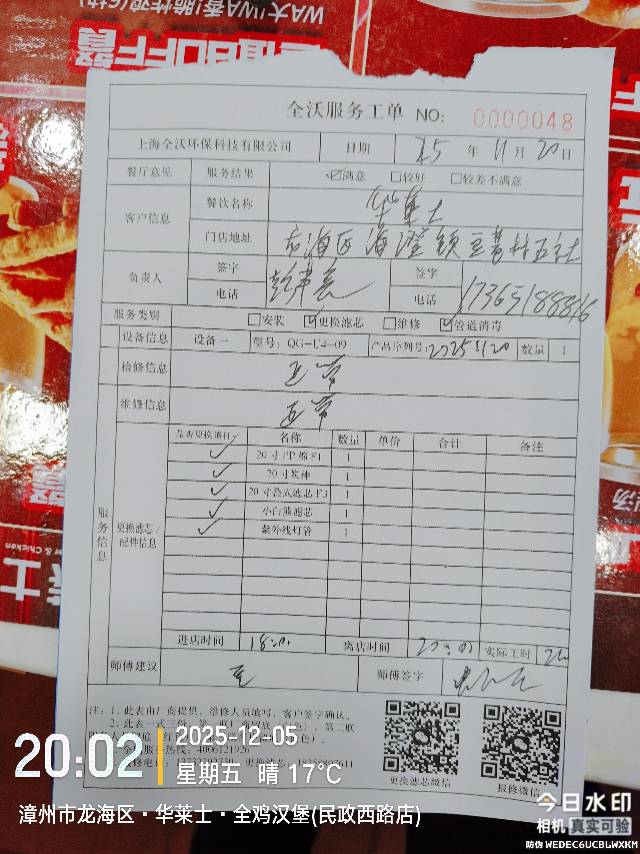 全沃服务工单 NO: 0000048
上海全沃环保科技有限公司 日期 25年11月20日
餐厅意见 服务结果 ☑满意 □较好 □较差不满意
客户信息 餐饮名称 华莱士
门店地址 龙海区海澄镇豆巷村五社
负责人 签字 签字
电话 电话 17365188316
服务类别 □安装 ☑更换滤芯 □维修 ☑管道消毒
设备信息 设备一 型号: QG-U4-09 产品序列号: 20251120 数量 1
检修信息 正常
维修信息 正常
服务信息 更换滤芯/配件信息
是否更换请打✓ 名称 数量 单价 合计 备注
✓ 20寸PP棉F1 1
✓ 20寸炭棒 1
✓ 20寸叠式滤芯F3 1
✓ 小白熊滤芯 1
✓ 紫外线灯管 1
进店时间 18:00 离店时间 20:00 实际工时 2h
师傅建议 无 师傅签字
注: 1、此表由厂商提供, 维修人员填写, 客户签字确认。
2、此表一式三份, 第一联厂商留底(白色), 第二联
全沃服务热线: 4006121926
更换滤芯微信 报修微信
20:02 2025-12-05
星期五 晴 17℃
漳州市龙海区·华莱士·全鸡汉堡(民政西路店)
今日水印
相机 真实可验
防伪 WEDEC6UCBLWXKM